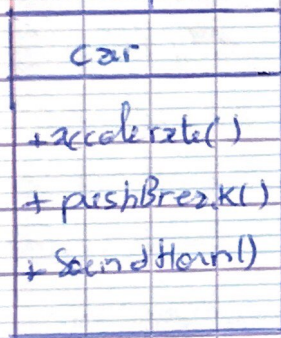 Car
+accelerate()
+ pushBreak()
+ SoundHorn()